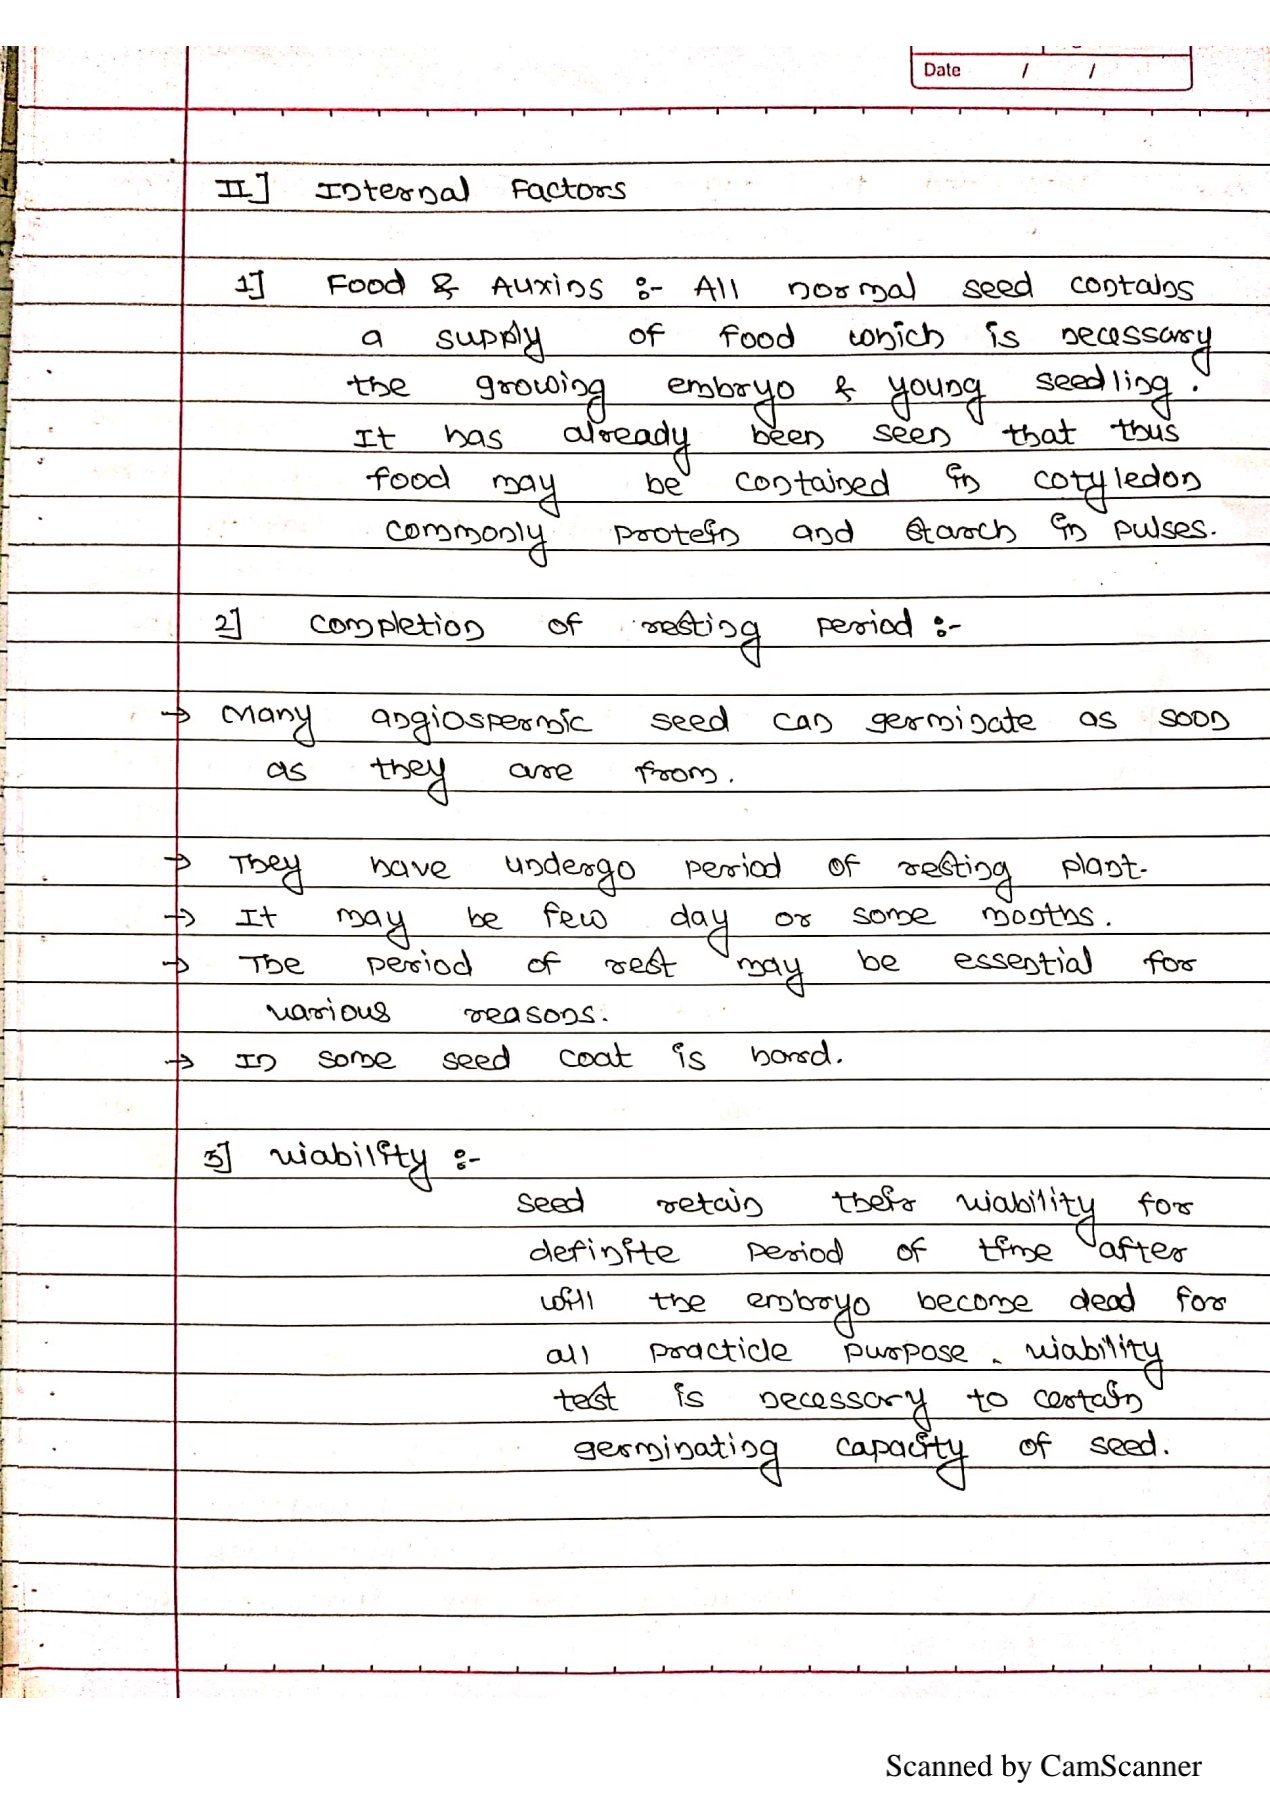 Date / /
II] Internal Factors
1] Food & Auxins :- All normal seed contains
a supply of food which is necessary
the growing embryo & young seedling.
It has already been seen that thus
food may be contained in cotyledon
commonly protein and starch in pulses.
2] completion of resting period :-
→ Many angiospermic seed can germinate as soon
as they are from.
→ They have undergo period of resting plant.
→ It may be few day or some months.
→ The period of rest may be essential for
various reasons.
→ In some seed coat is hard.
3] viability :-
seed retain their viability for
definite period of time after
will the embryo become dead for
all practicle purpose. viability
test is necessary to certain
germinating capacity of seed.
Scanned by CamScanner